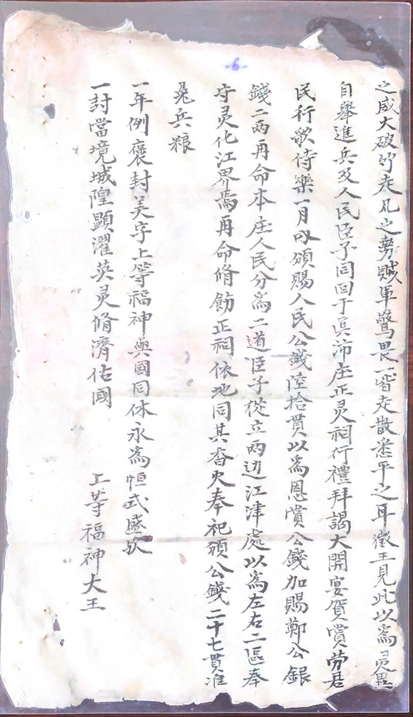 -6-
之威大破竹走凡之勢賊軍驚畏一皆走散悉平之耳徵王見此以為灵異
自舉進兵及人民臣子同回于真沛庄正灵祠行禮拜謁大開宴賀賞勞君
民行歌侍樂一月頒賜人民公錢陸拾貫以為恩賞公錢加賜鄭公銀
錢二兩再命本庄人民分為二道臣子從立兩边江津處以為左右二區奉
守灵化江界焉再命脩飭正祠依地同其杳火奉祀頒公錢二十七貫准
免兵粮
一年例褒封美字上等福神與國同休永為恒式盛欤
一封當境城隍顯濯英灵脩濟佑國 上等福神大王